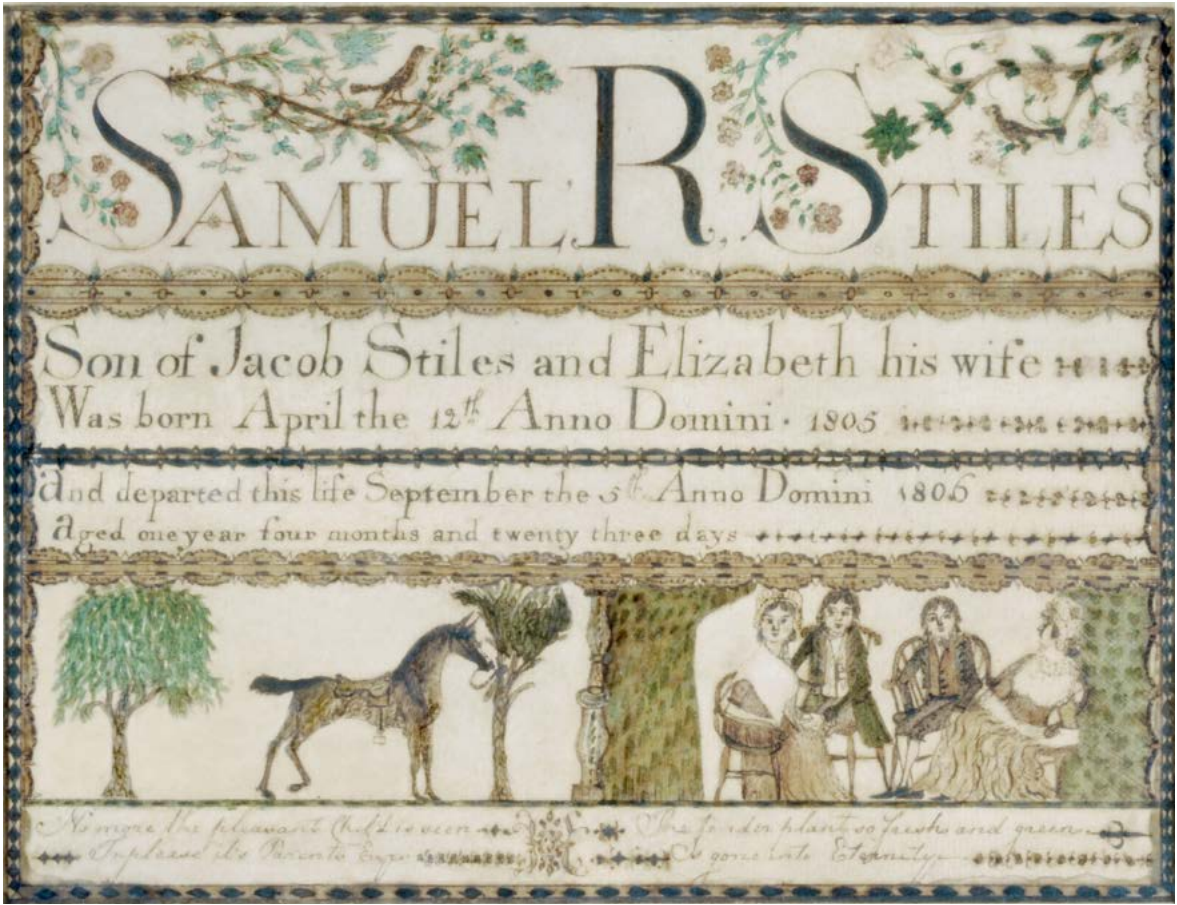 SAMUEL, R, STILES
Son of Jacob Stiles and Elizabeth his wife
Was born April the 12th Anno Domini · 1805
and departed this life September the 5th Anno Domini 1806
aged one year four months and twenty three days
No more the pleasant Child is seen
To please it's Parents Eye
The tender plant so fresh and green
Is gone into Eternity